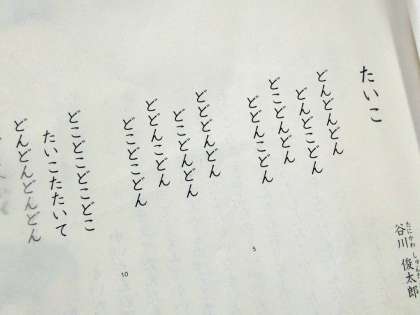 たいこ
谷川 俊太郎
どんどんどん
どんどこどん
どこどんどん
どどんこどん
5
どどどんどん
どこどんどん
どどんこどん
どこどこどん
10
どこどこどこどこ
たいこたたいて
どんどんどんどん